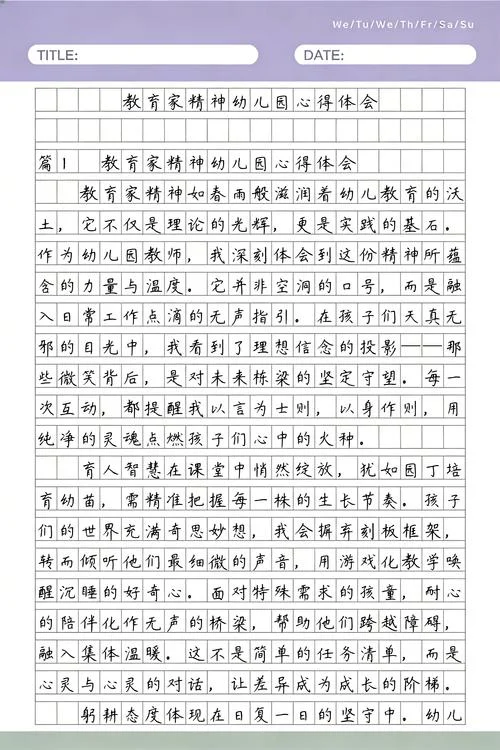 We/Tu/We/Th/Fr/Sa/Su
TITLE: DATE:
教育家精神幼儿园心得体会
篇1 教育家精神幼儿园心得体会
教育家精神如春雨般滋润着幼儿教育的沃
土，它不仅是理论的光辉，更是实践的基石。
作为幼儿园教师，我深刻体会到这份精神所蕴
含的力量与温度。它并非空洞的口号，而是融
入日常工作点滴的无声指引。在孩子们天真无
邪的目光中，我看到了理想信念的投影——那
些微笑背后，是对未来栋梁的坚定守望。每一
次互动，都提醒我以言为士则，以身作则，用
纯净的灵魂点燃孩子们心中的火种。
育人智慧在课堂中悄然绽放，犹如园丁培
育幼苗，需精准把握每一株的生长节奏。孩子
们的世界充满奇思妙想，我会摒弃刻板框架，
转而倾听他们最细微的声音，用游戏化教学唤
醒沉睡的好奇心。面对特殊需求的孩童，耐心
的陪伴化作无声的桥梁，帮助他们跨越障碍，
融入集体温暖。这不是简单的任务清单，而是
心灵与心灵的对话，让差异成为成长的阶梯。
躬耕态度体现在日复一日的坚守中。幼儿